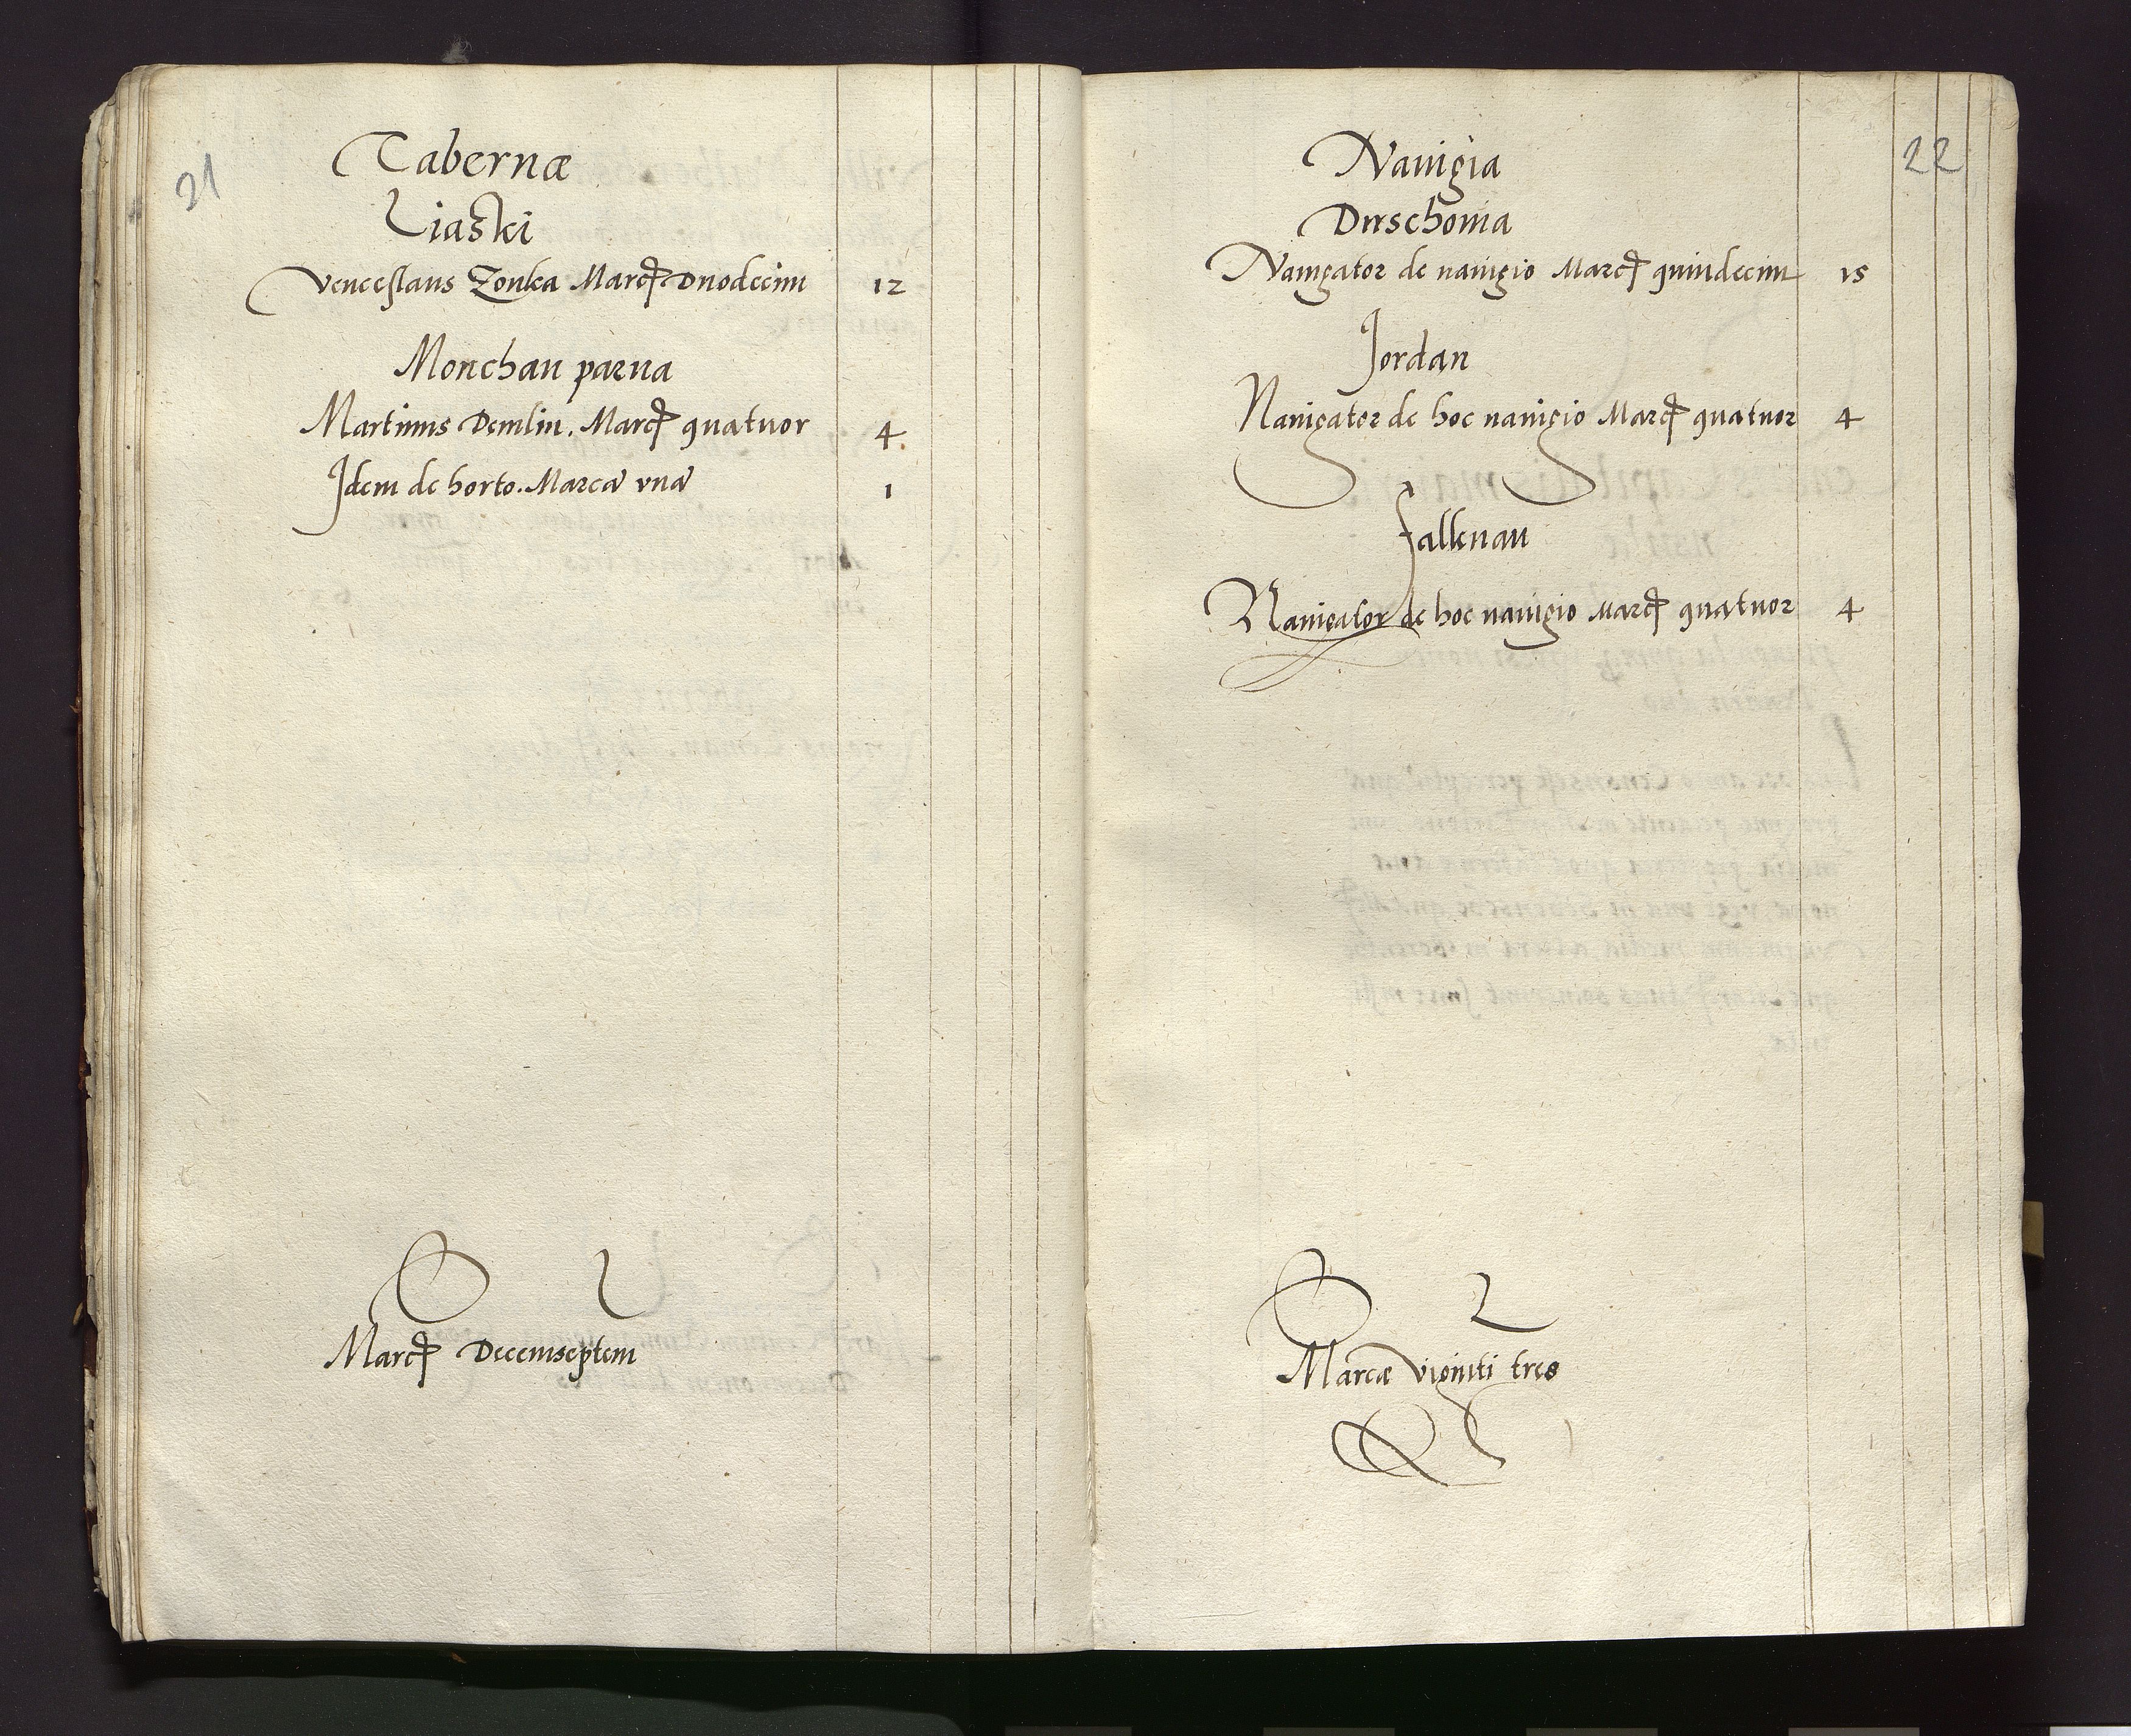 21
Tabernæ
Liaski
Venceslaus Zonka Marcę Duodecim 12
Monchau parua
Martinus Demlin. Marcę quatuor 4.
Idem de horto. Marcā vnā 1
Marcę Decemseptem
22
Nauigia
Dirschouia
Nauigator de nauigio Marcę quindecim 15
Jordan
Nauigator de hoc nauigio Marcę quatuor 4
Falkenau
Nauigator de hoc nauigio Marcę quatuor 4
Marcæ viginti tres